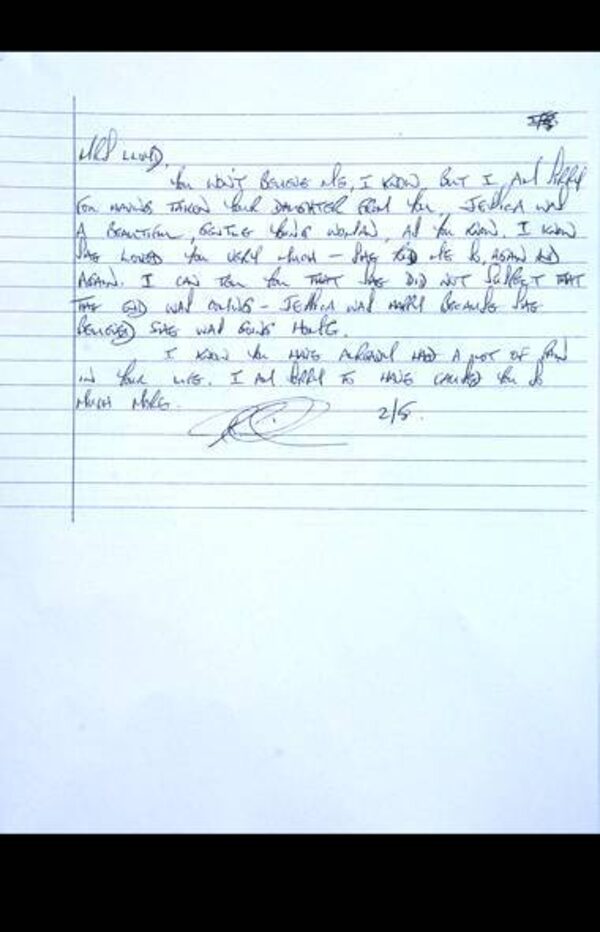 MRS LLOYD,
YOU WON'T BELIEVE ME, I KNOW, BUT I AM SORRY
FOR HAVING TAKEN YOUR DAUGHTER FROM YOU. JESSICA WAS
A BEAUTIFUL, GENTLE YOUNG WOMAN, AS YOU KNOW. I KNOW
SHE LOVED YOU VERY MUCH – SHE TOLD ME SO, AGAIN AND
AGAIN. I CAN TELL YOU THAT SHE DID NOT SUSPECT THAT
THE END WAS COMING – JESSICA WAS HAPPY BECAUSE SHE
BELIEVED SHE WAS GOING HOME.
I KNOW YOU HAVE ALREADY HAD A LOT OF PAIN
IN YOUR LIFE. I AM SORRY TO HAVE CAUSED YOU SO
MUCH MORE.
2/5.